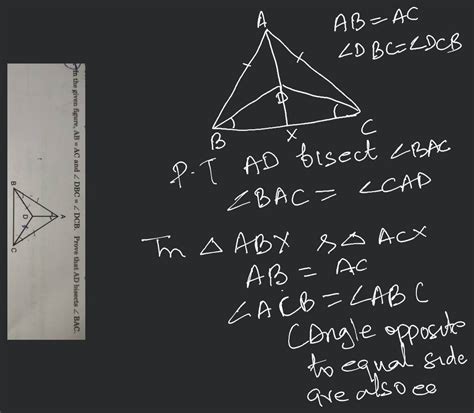 In the given figure, AB = AC and ∠ DBC = ∠ DCB. Prove that AD bisects ∠ BAC.
A
B
D
C
A
D
B
X
C
AB = AC
∠DBC = ∠DCB
P.T AD bisect ∠BAC
∠BAC = ∠CAD
In △ ABX & △ ACX
AB = AC
∠ACB = ∠ABC
(Angle opposite
to equal side
are also eq